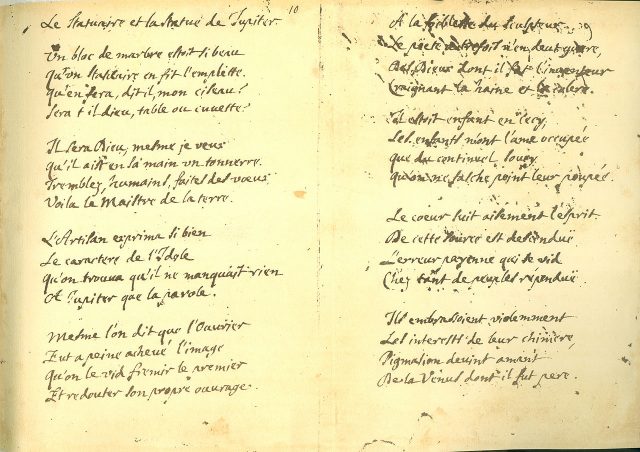 10
Le Statuaire et la Statue de Jupiter
Un bloc de marbre estoit si beau
Qu'on Statuaire en fit l'emplette.
Qu'en fera, dit il, mon ciseau?
Sera t il dieu, table ou cuuette?
Il sera Dieu, mesme je veux
Qu'il ait en sa main vn tonnerre.
Tremblez, humains, faites des vœux
Voila le Maistre de la terre.
L'Artisan exprima si bien
Le caractere de l'Idole
Qu'on trouua qu'il ne manquoit rien
A Jupiter que la parole.
Mesme l'on dit que l'Ouurier
Eut a peine acheué l'image
Qu'on le vid fremir le premier
Et redouter son propre ouurage.
A la foiblesse du sculpteur
Le poete autrefois n'en deut guere,
Des Dieux dont il fut l'inuenteur
Craignant la haine et la colere.
Il estoit enfant en cecy,
Les enfants n'ont l'ame occupée
que du continuel soucy
Qu'on ne fasche point leur poupée.
Le coeur suit aisement l'esprit
De cette source est descenduë
L'erreur payenne qui se vid
Chez tant de peuples répanduë
Ils embrassoient violemment
Les interests de leur chimere,
Pigmalion deuint amant
De la Venus dont il fut pere.